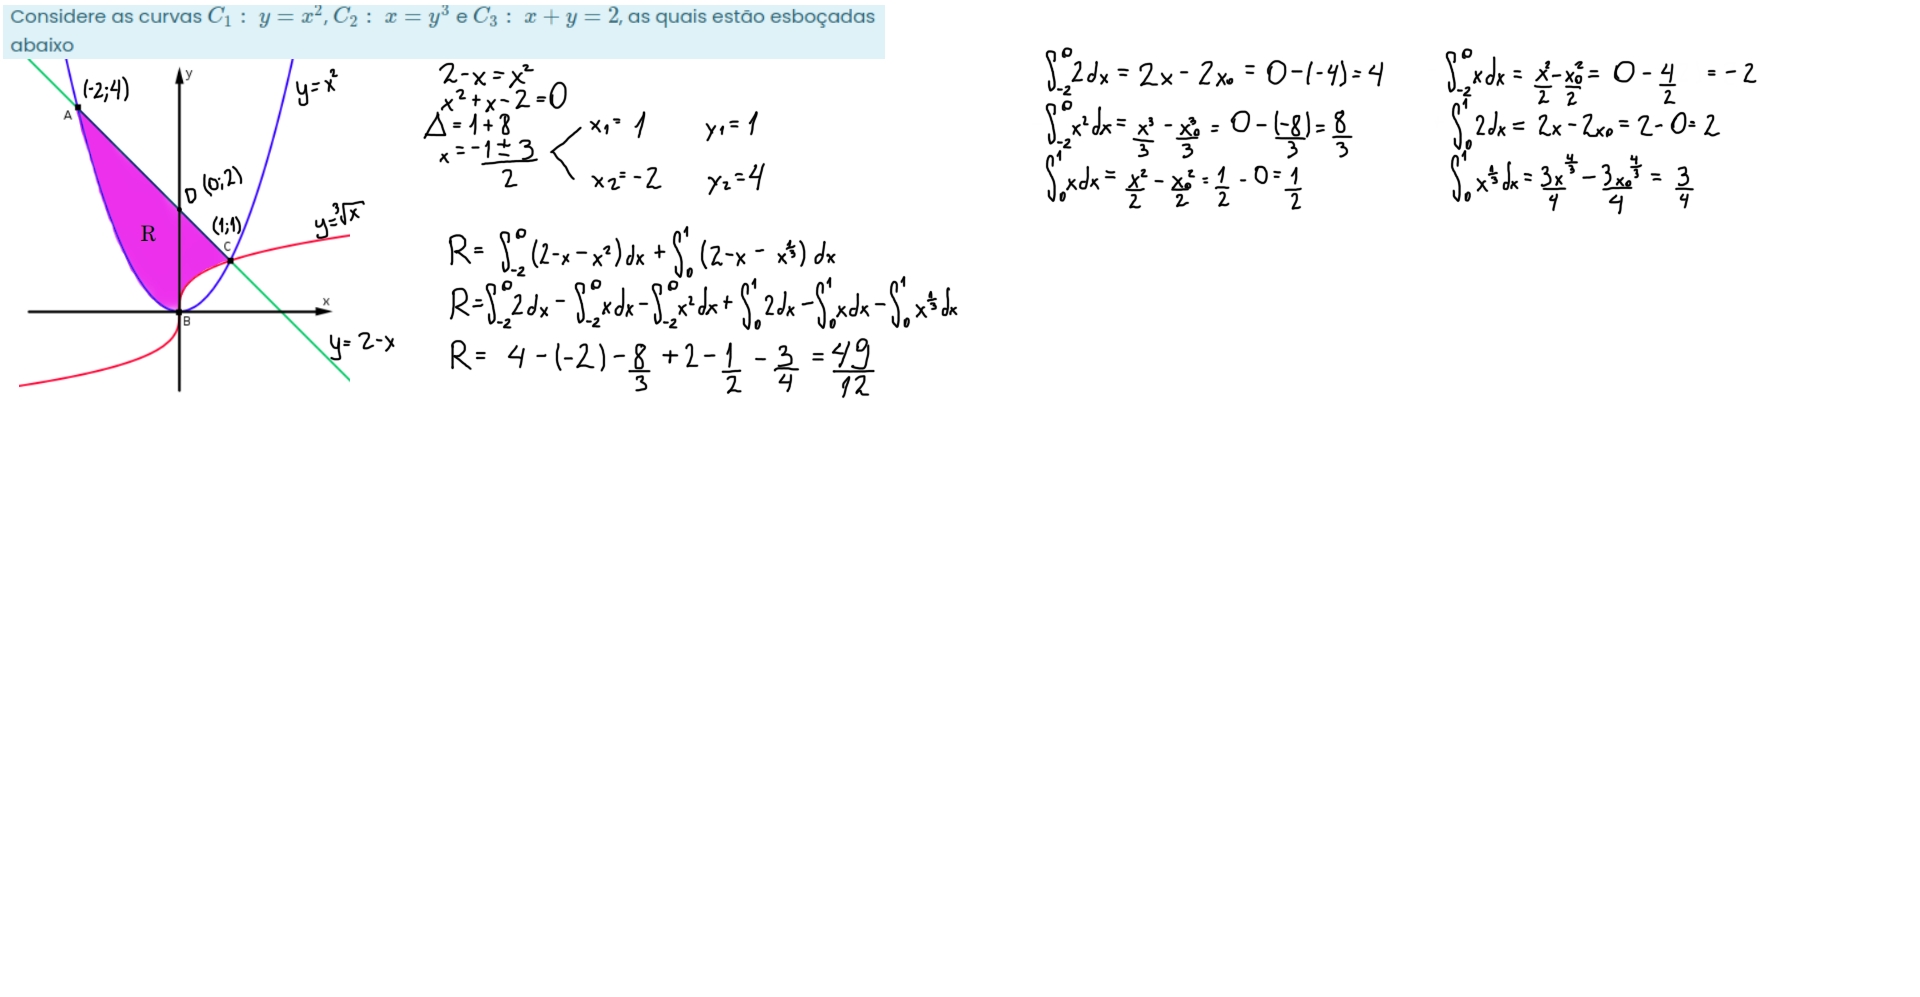 Considere as curvas C₁ : y = x², C₂ : x = y³ e C₃ : x + y = 2, as quais estão esboçadas
abaixo
(-2;4)
A
y
y=x²
D (0;2)
R
(1;1)
C
y=³√x
x
B
y= 2-x
2-x=x²
x²+x-2=0
Δ=1+8
x=(-1±3)/2
x₁= 1 y₁=1
x₂=-2 y₂=4
R= ∫₋₂⁰ (2-x-x²)dx + ∫₀¹ (2-x - x^(1/3)) dx
R=∫₋₂⁰ 2dx - ∫₋₂⁰ xdx - ∫₋₂⁰ x²dx + ∫₀¹ 2dx - ∫₀¹ xdx - ∫₀¹ x^(1/3) dx
R= 4 -(-2) - 8/3 + 2 - 1/2 - 3/4 = 49/12
∫₋₂⁰ 2dx = 2x - 2x₀ = 0-(-4)=4
∫₋₂⁰ x²dx = x³/3 - x₀³/3 = 0-(-8)/3 = 8/3
∫₀¹ xdx = x²/2 - x₀²/2 = 1/2 - 0 = 1/2
∫₋₂⁰ xdx = x²/2 - x₀²/2 = 0 - 4/2 = -2
∫₀¹ 2dx = 2x-2x₀ = 2-0=2
∫₀¹ x^(1/3) dx = 3x^(4/3)/4 - 3x₀^(4/3)/4 = 3/4